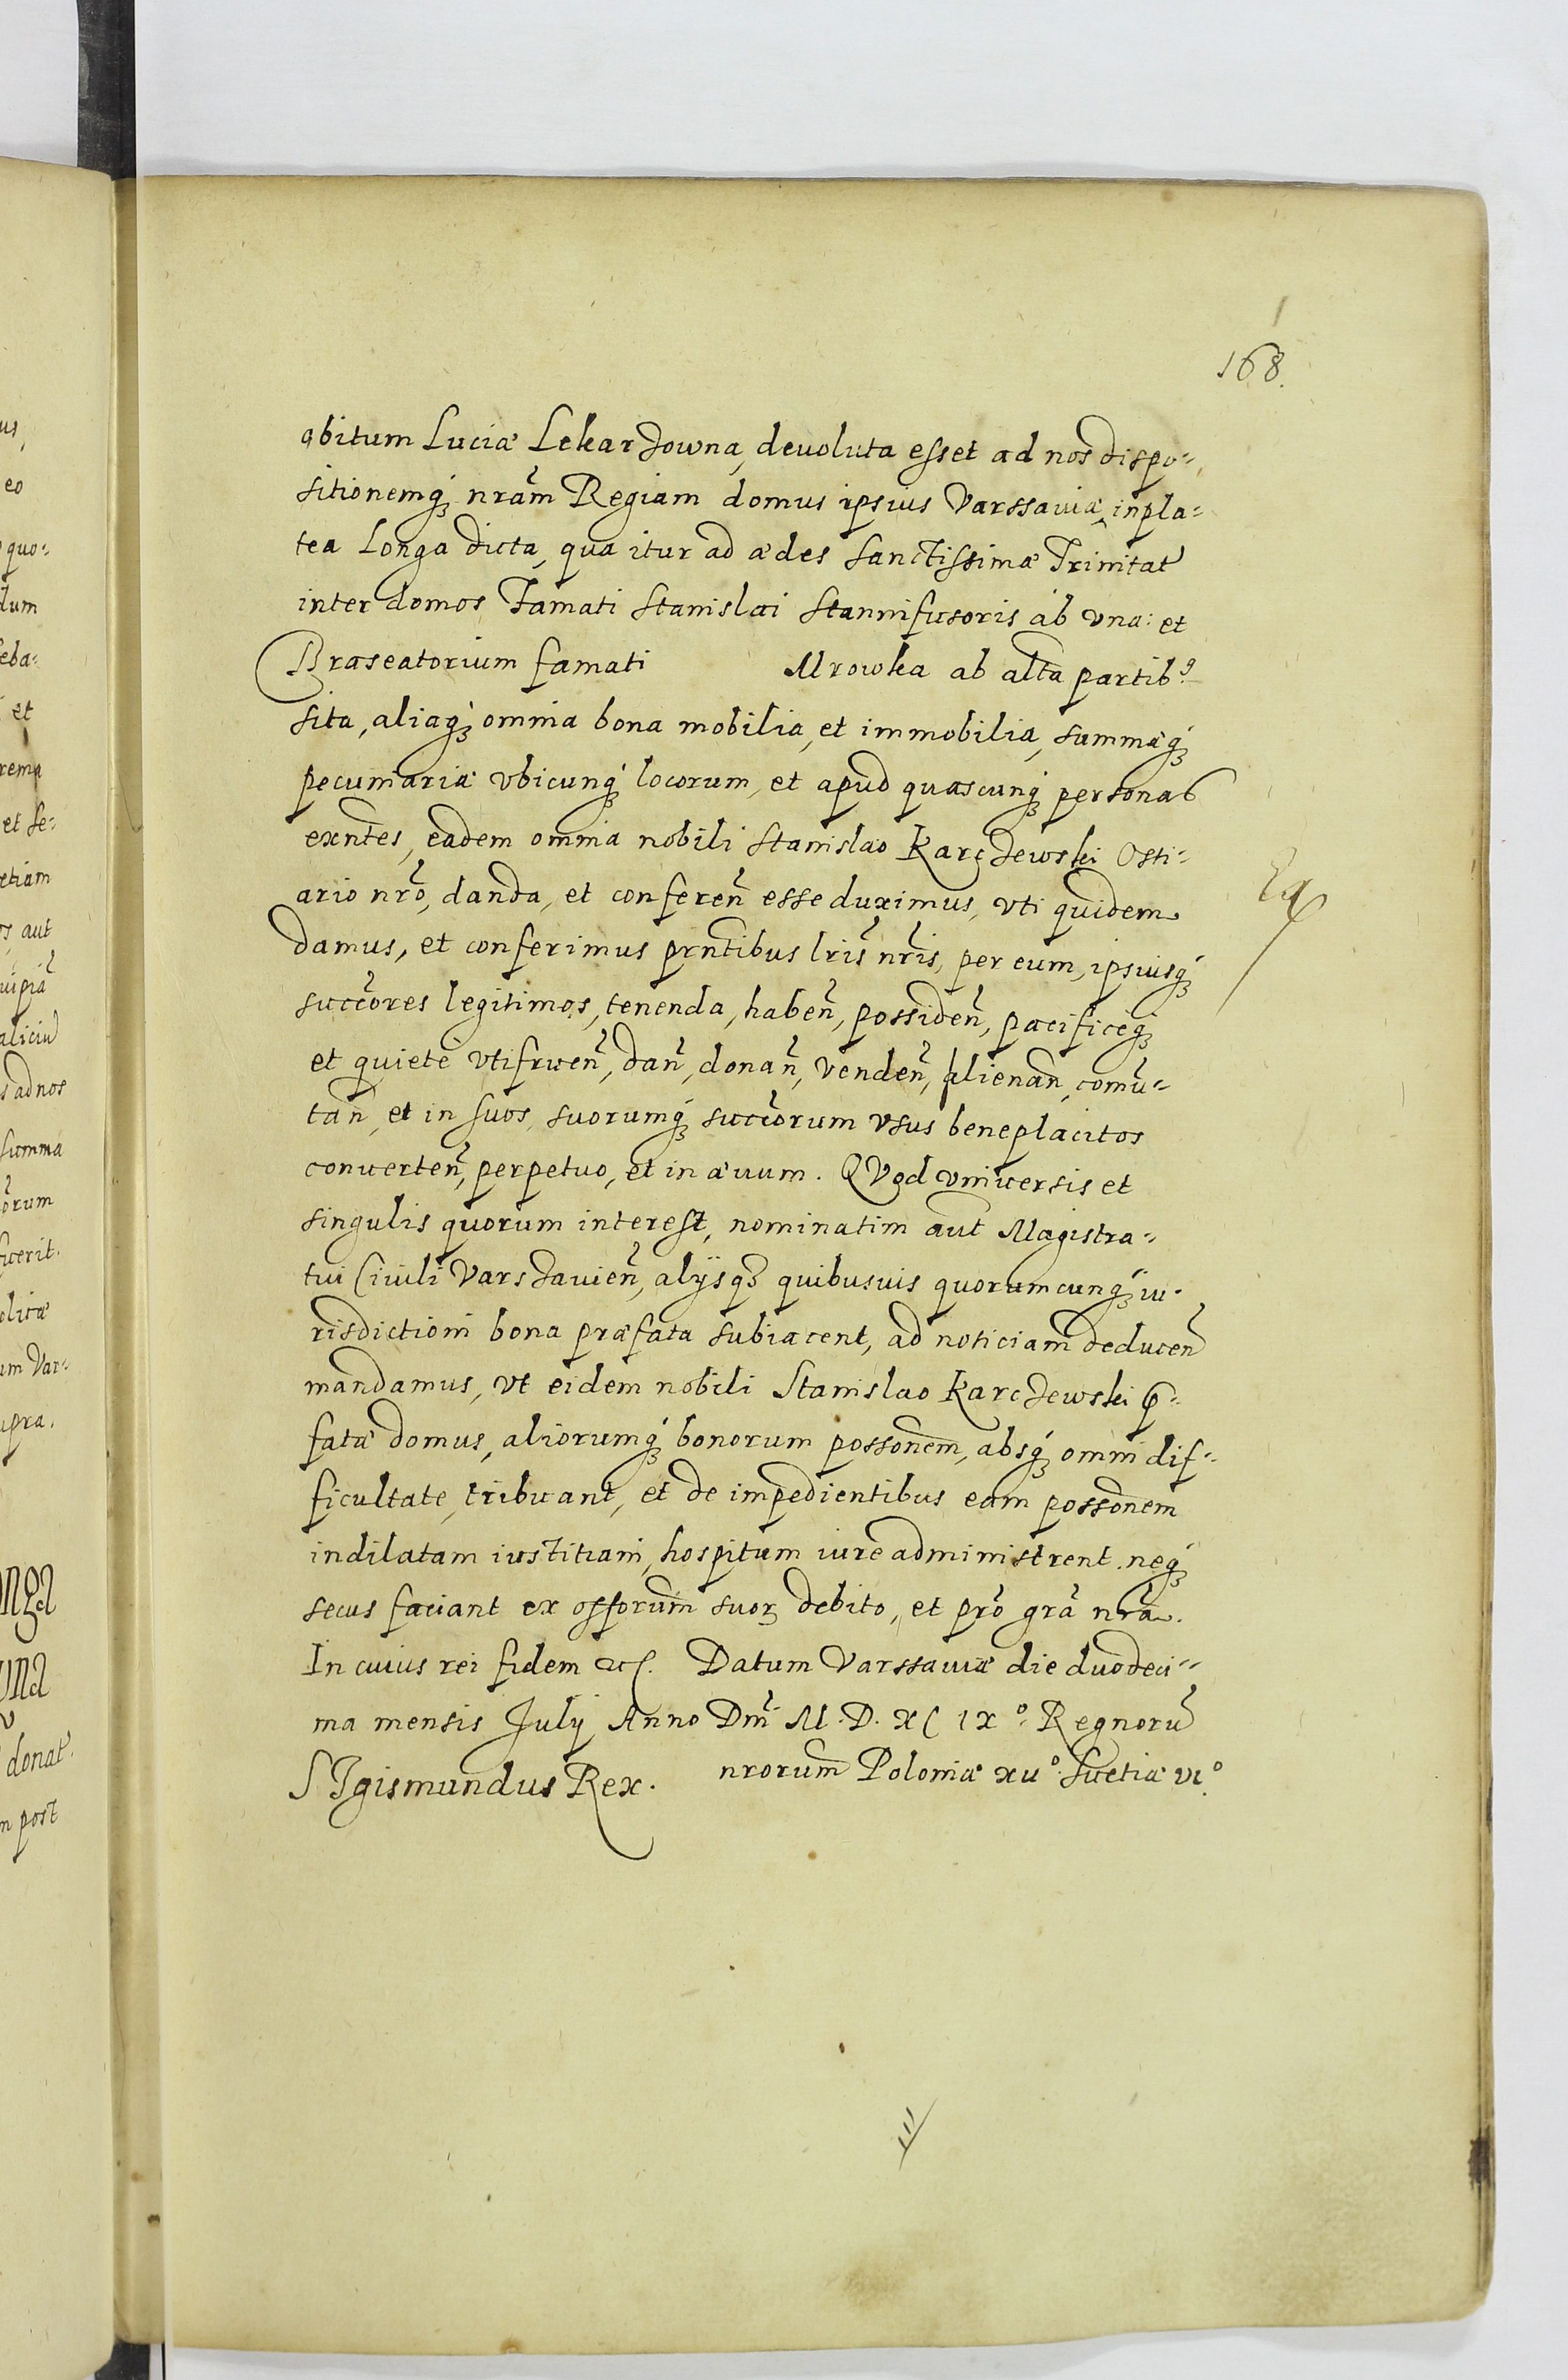 168.
obitum Luciæ Lekarzowna, deuoluta esset ad nos dispo=
sitionemq́ʒ nr̃am Regiam domus ipsius Varssauiæ, in pla=
tea Longa dicta, qua itur ad ædes Sanctissimæ Trinitat̃
inter domos Famati Stanislai Stannifusoris ab vna: et
Braseatorium famati Mrowka ab alt̃a partibꝰ
sita, aliaq́ʒ omnia bona mobilia, et immobilia, summáq́ʒ
pecuniariá vbicunq́ʒ locorum, et apud quascunq́ʒ personas
exñtes, eadem omnia nobili Stanislao Karczewski Osti=
ario nr̃o, danda, et conferen̄ esse duximus, vti quidem
damus, et conferimus prñtibus lr̃is nr̃is, per eum, ipsiusq́ʒ
succẽores legitimos, tenenda, haben̄, possiden̄, pacificeq́ʒ
et quietè vtifruen̄, dan̄, donan̄, venden̄, alienan̄, comū=
tan̄, et in suos, suorumq́ʒ succẽorum vsus beneplacitos
conuerten̄, perpetuo, et in æuum. QVod vniuersis et
singulis quorum interest, nominatim aut̃ Magistra=
tui Ciuili Varszauien̄, alijsqʒ quibusuis quorumcunq́ʒ iu=
risdictioni bona præfata subiacent, ad noticiam deducen̄
mandamus, vt eidem nobili Stanislao Karczewski p̄=
fatæ domus, aliorumq́ʒ bonorum possõnem, absq́ʒ omni dif=
ficultate, tribuant, et de impedientibus eam possõnem
indilatam iustitiam, hospitum iure administrent. neq́ʒ
secus faciant ex offõrum suorꝫ debito, et prõ gr̃a nr̃a.
In cuius rei fidem ꝛc. Datum Varssauiæ die duodeci=
ma mensis July Anno Dm̃ M.D.XCIXº. Regnorū
nrorum̃ Poloniæ xiiº. Suetiæ viº.
SIgismundus Rex.